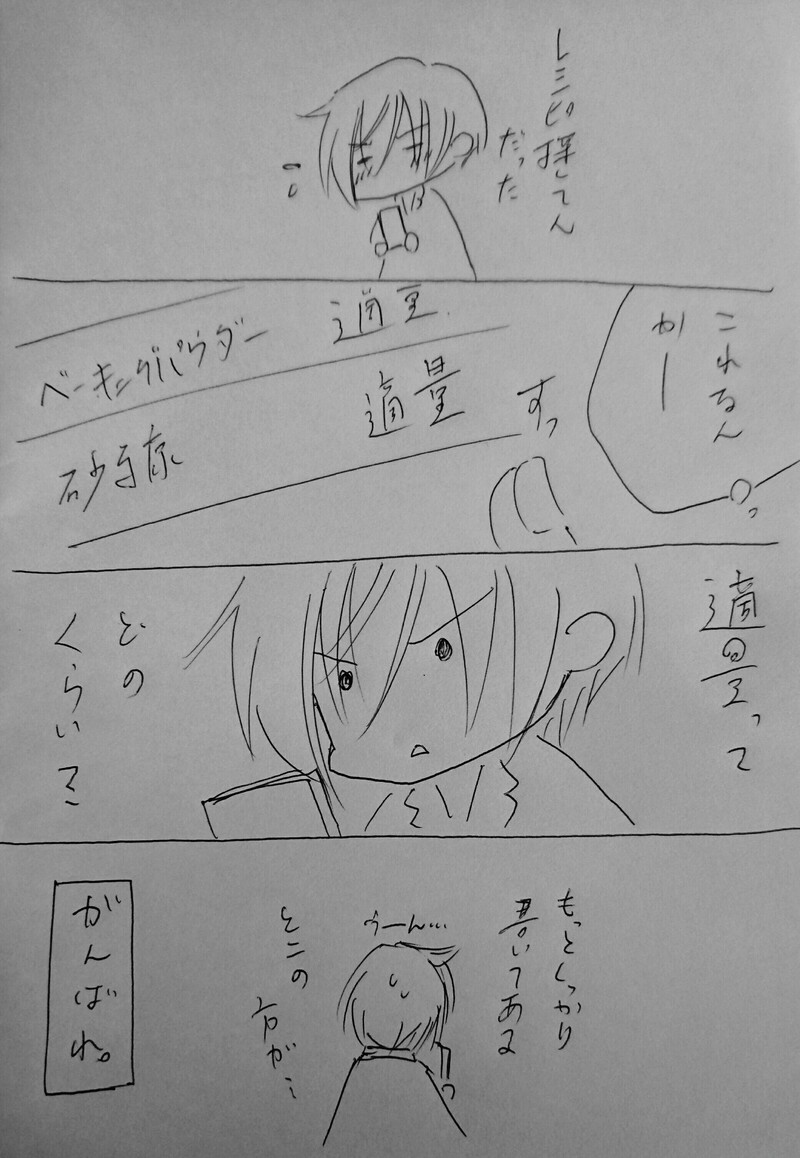 レシピ探してん
だった
これるん
かー
適量
ベーキングパウダー
適量
砂
すっ
適量って
どの
くらいで
もっとしっかり
書いてある
うーん…
とこの
方が…
がんばれ。